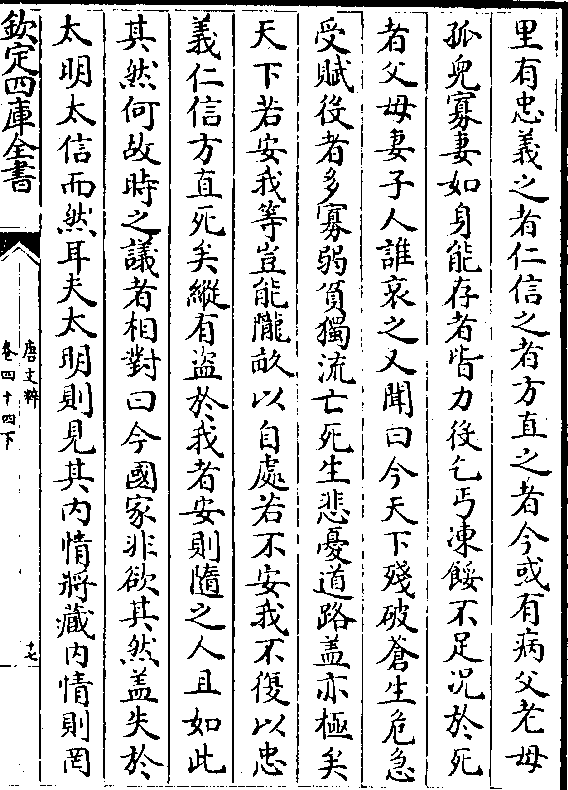 里有忠義之者仁信之者方直之者今或有病父老母
孤兒寡妻如身能存者皆力役乞丐凍餒不足况於死
者父母妻子人誰哀之又聞曰今天下殘破蒼生危急
受賦役者多寡弱貧獨流亡死生悲憂道路盖亦極矣
天下若安我等豈能隴畝以自處若不安我不復以忠
義仁信方直死矣縱有盗於我者安則隨之人且如此
其然何故時之議者相對曰今國家非欲其然盖失於
太明太信而然耳夫太明則見其内情將藏内情則罔
欽定四庫全書
唐文粹
卷四十四下
十七